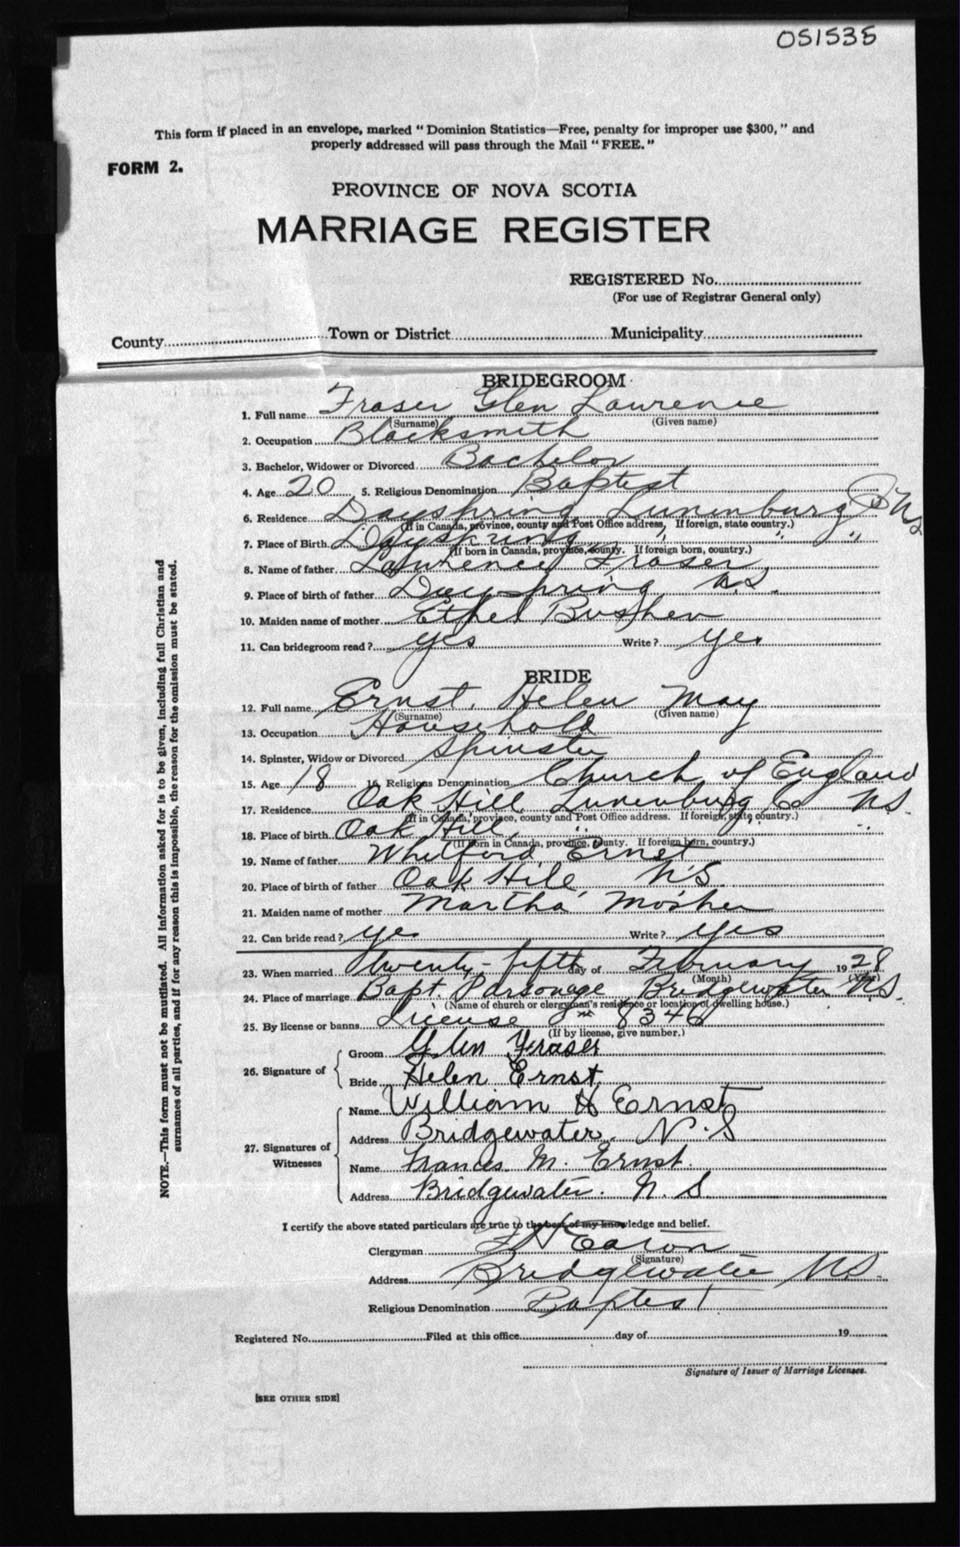 051535
This form if placed in an envelope, marked "Dominion Statistics—Free, penalty for improper use $300," and
properly addressed will pass through the Mail "FREE."
FORM 2.
PROVINCE OF NOVA SCOTIA
MARRIAGE REGISTER
REGISTERED No.
(For use of Registrar General only)
County Town or District Municipality
BRIDEGROOM
1. Full name Fraser Glen Lawrence
(Surname) (Given name)
2. Occupation Blacksmith
3. Bachelor, Widower or Divorced Bachelor
4. Age 20 5. Religious Denomination Baptist
6. Residence Dayspring Lunenburg Co NS
(If in Canada, province, county and Post Office address, If foreign, state country.)
7. Place of Birth Dayspring " " "
(If born in Canada, province, county. If foreign born, country.)
8. Name of father Lawrence Fraser
9. Place of birth of father Dayspring N.S.
10. Maiden name of mother Ethel
11. Can bridegroom read? yes Write? yes
BRIDE
12. Full name Ernst, Helen May
(Surname) (Given name)
13. Occupation Household
14. Spinster, Widow or Divorced Spinster
15. Age 18 16. Religious Denomination Church of England
17. Residence Oak Hill Lunenburg Co NS.
(If in Canada, province, county and Post Office address. If foreign, state country.)
18. Place of birth Oak Hill, " " "
(If born in Canada, province, county. If foreign born, country.)
19. Name of father Whitford Ernst
20. Place of birth of father Oak Hill N.S.
21. Maiden name of mother Martha Mosher
22. Can bride read? yes Write? yes
23. When married twenty-fifth day of February 1928
(Month) (Year)
24. Place of marriage Bapt. Parsonage Bridgewater N.S.
(Name of church or clergyman's residence or location of dwelling house.)
25. By license or banns License No 8346
(If by license, give number.)
26. Signature of
Groom Glen Fraser
Bride Helen Ernst
27. Signatures of Witnesses
Name William H Ernst
Address Bridgewater, N.S
Name Frances M. Ernst.
Address Bridgewater. N.S
I certify the above stated particulars are true to the best of my knowledge and belief.
Clergyman F H Eaton
(Signature)
Address Bridgewater NS.
Religious Denomination Baptist
Registered No. Filed at this office day of 19
Signature of Issuer of Marriage Licenses.
[SEE OTHER SIDE]
NOTE.—This form must not be mutilated. All information asked for is to be given, including full Christian and
surnames of all parties, and if for any reason this is impossible, the reason for the omission must be stated.